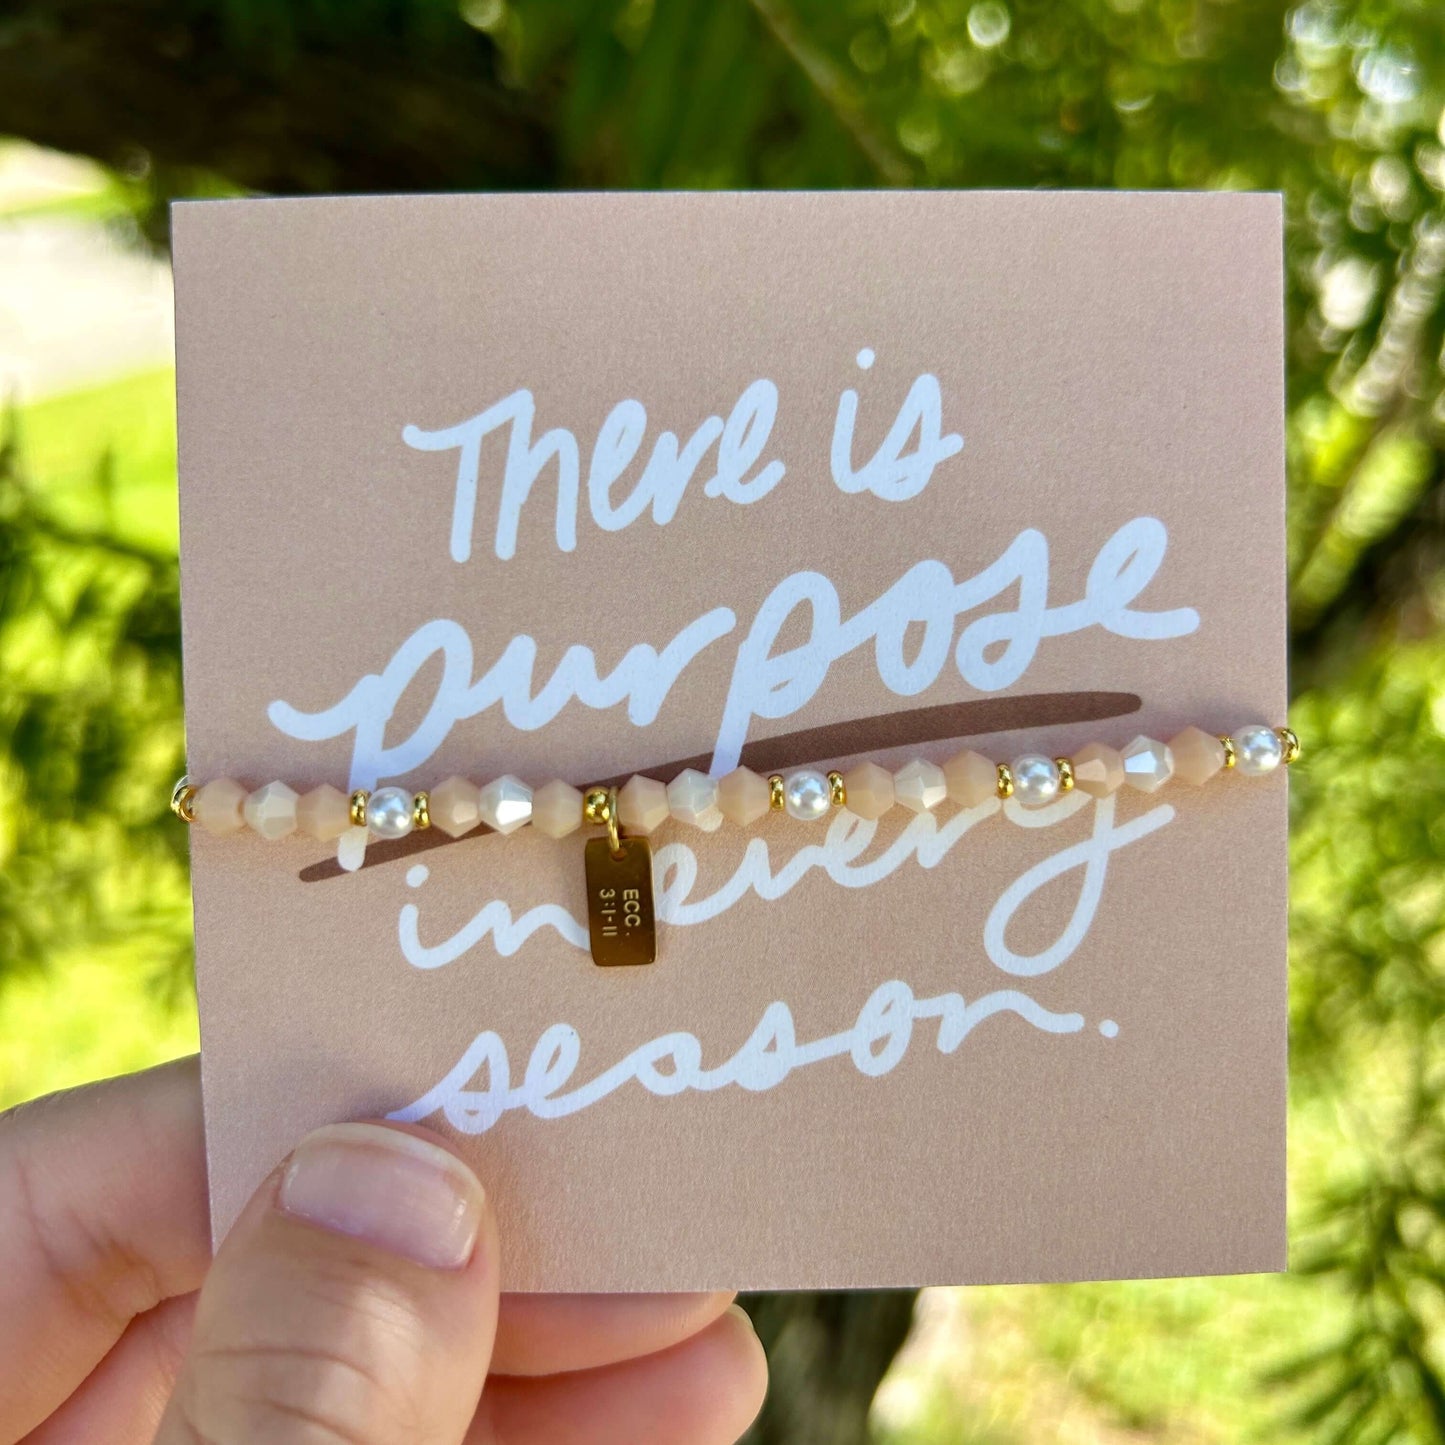 There is
purpose
in every
season.
ECC.
3:1-11